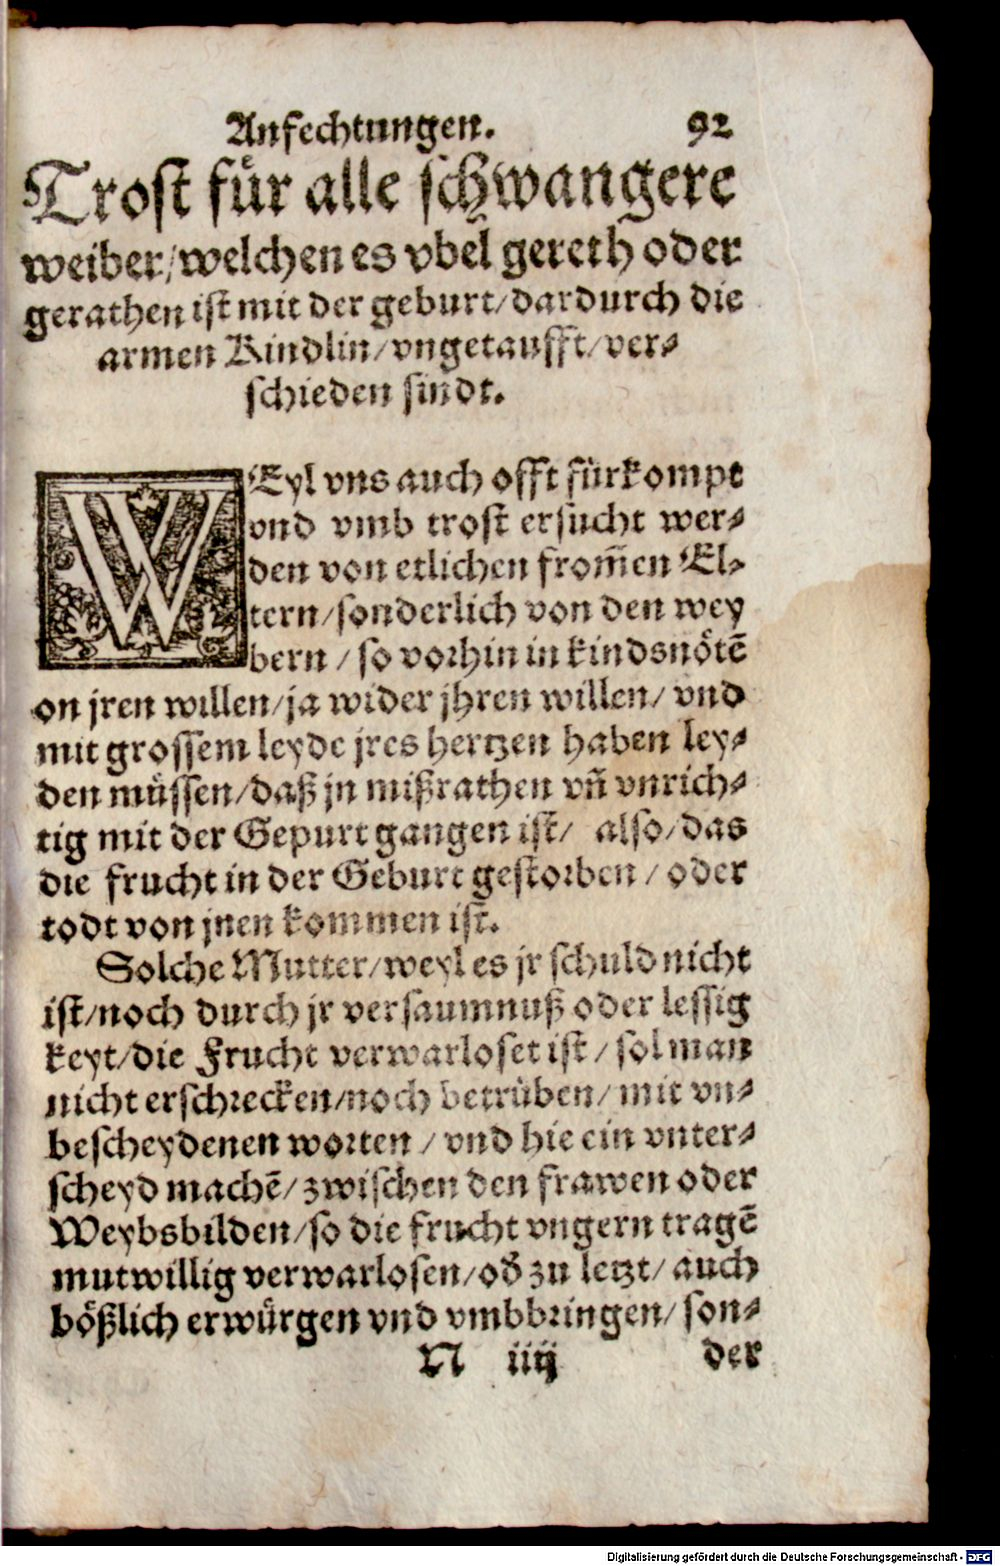 Anfechtungen. 92
Trost fuͤr alle schwangere
weiber/welchen es vbel gereth oder
gerathen ist mit der geburt/dardurch die
armen Kindlin/vngetaufft/ver⸗
schieden sindt.
WEyl vns auch offt fürkompt
vnd vmb trost ersucht wer⸗
den von etlichen from̃en El⸗
tern/sonderlich von den wey
bern / so vorhin in kindsnoͤtẽ
on jren willen/ja wider jhren willen/ vnd
mit grossem leyde jres hertzen haben ley⸗
den muͤssen/daß jn mißrathen vñ vnrich⸗
tig mit der Gepurt gangen ist/ also/das
die frucht in der Geburt gestorben / oder
todt von jnen kommen ist.
Solche Mutter/weyl es jr schuld nicht
ist/noch durch jr versaumnuß oder lessig
keyt/die Frucht verwarloset ist / sol man
nicht erschrecken/noch betrüben/ mit vn⸗
bescheydenen worten / vnd hie ein vnter⸗
scheyd machẽ/ zwischen den frawen oder
Weybsbilden/so die frucht vngern tragẽ
mutwillig verwarlosen/od̕ zu letzt/ auch
boͤßlich erwuͤrgen vnd vmbbringen/ son⸗
N iiij der
Digitalisierung gefördert durch die Deutsche Forschungsgemeinschaft - DFG